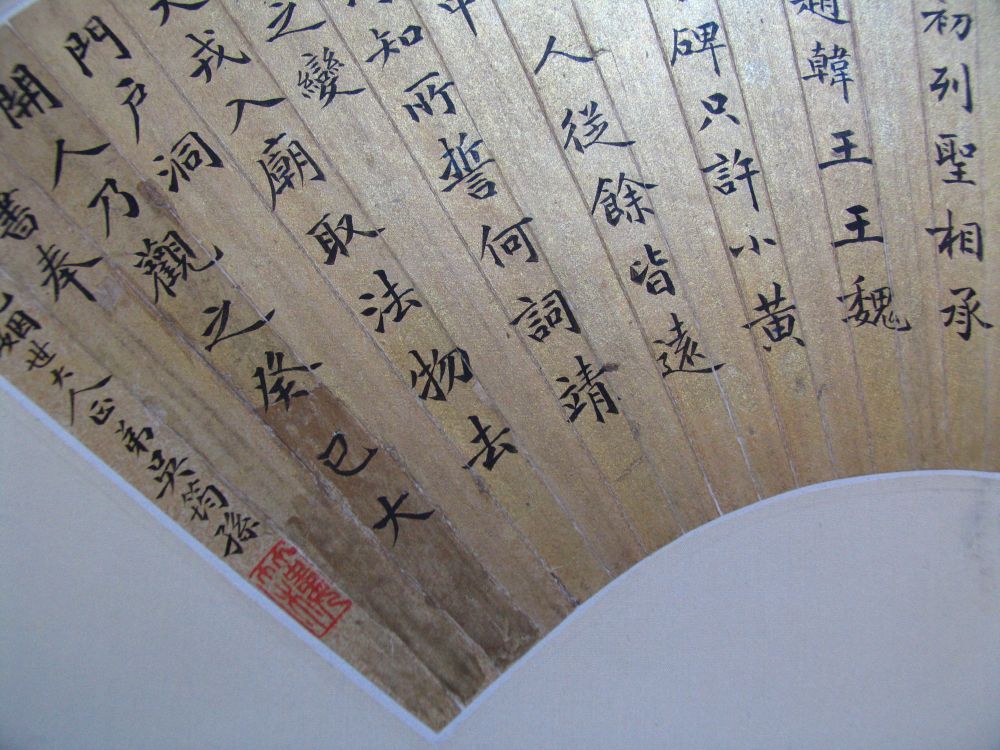 初列聖相承
趙韓王王魏
碑只許小黃
人從餘皆遠
中
知所誓何詞靖
之變
犬戎入廟取法物去
門戶洞
開人乃觀之癸巳大
書奉
姻世大人正弟吳筠孫